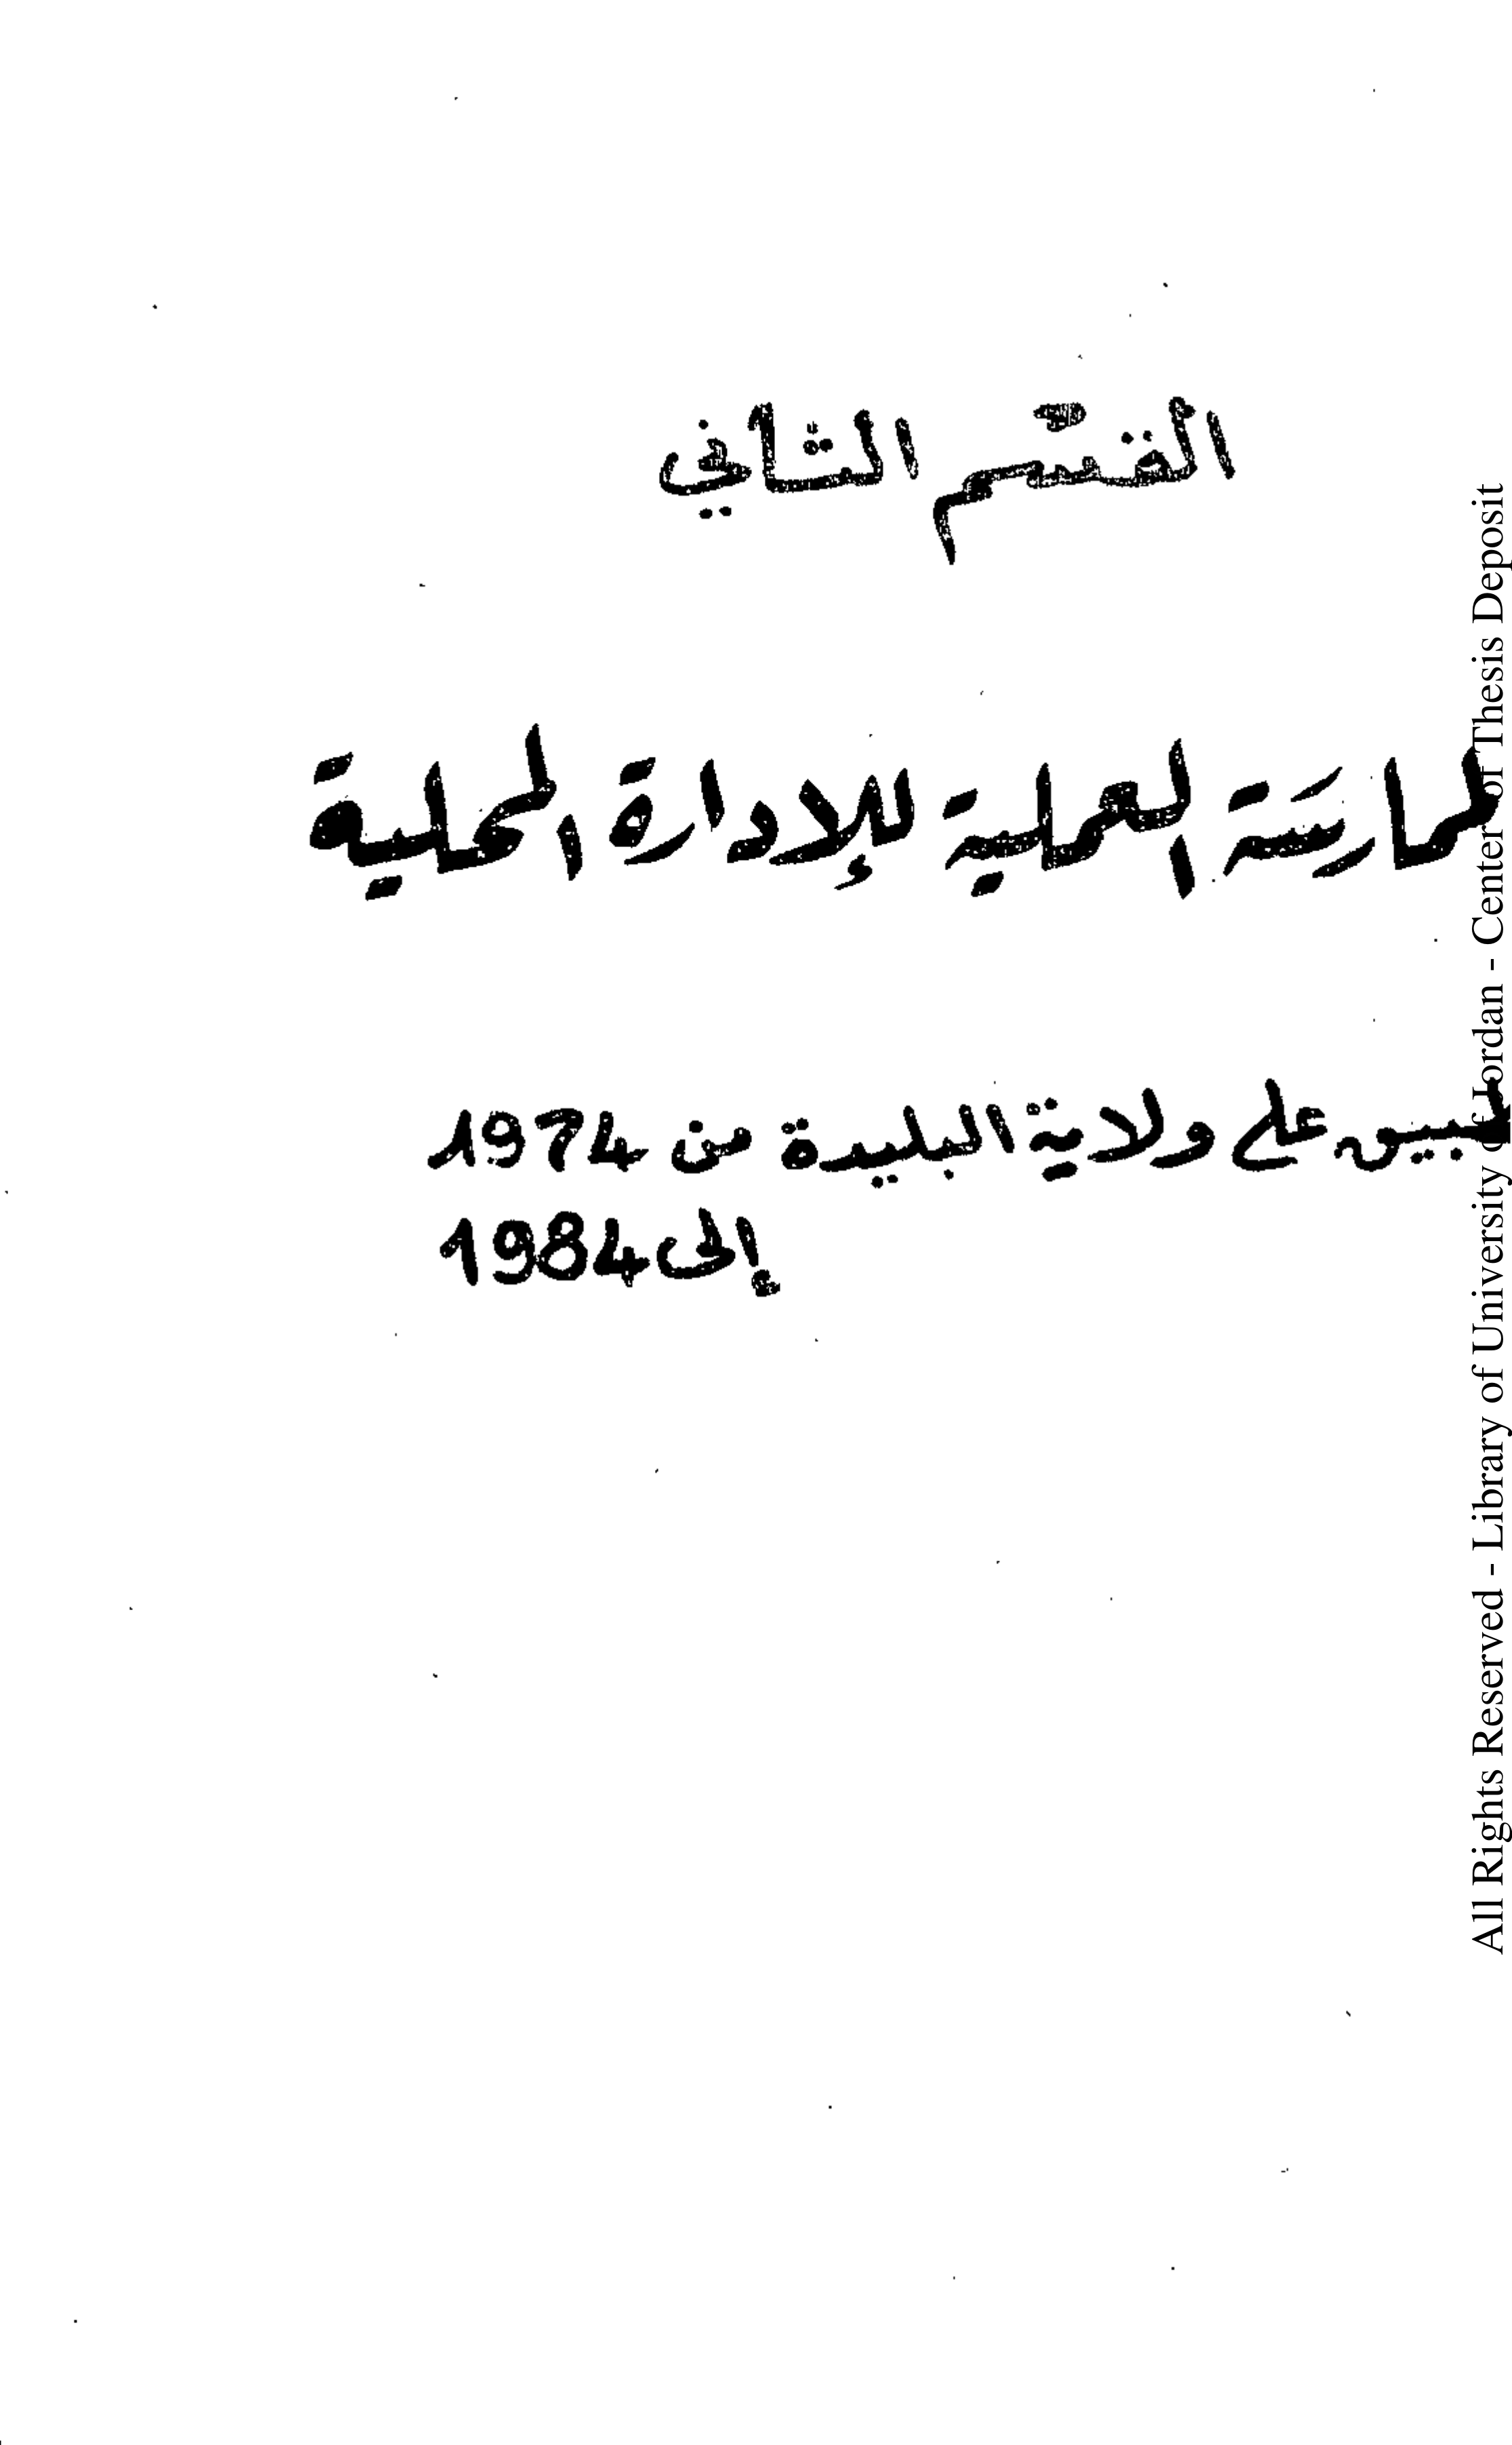 القسم الثاني
الممارسة العملية للإدارة المحلية
على ولاية البليدة من 1974
إلى 1984
All Rights Reserved - Library of University of Jordan - Center of Thesis Deposit